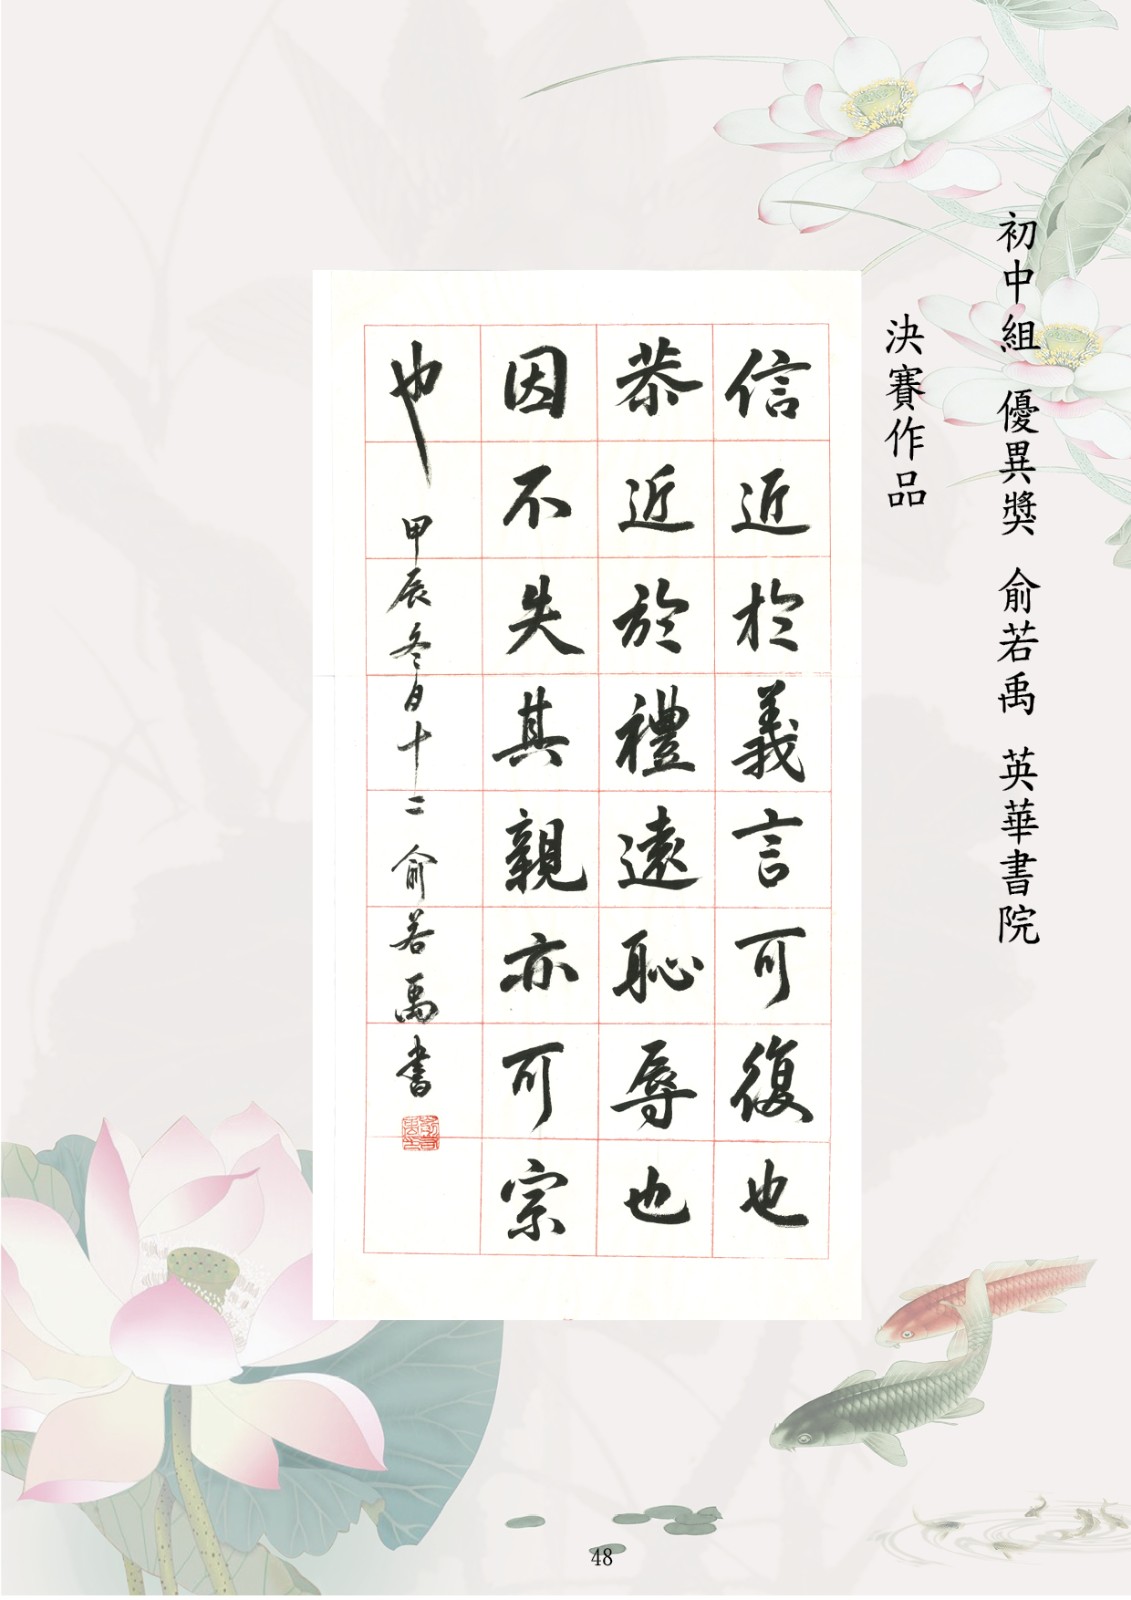 初中組 優異獎 俞若禹 英華書院
決賽作品
信近於義言可復也
恭近於禮遠恥辱也
因不失其親亦可宗
也 甲辰冬月十二 俞若禹書
48